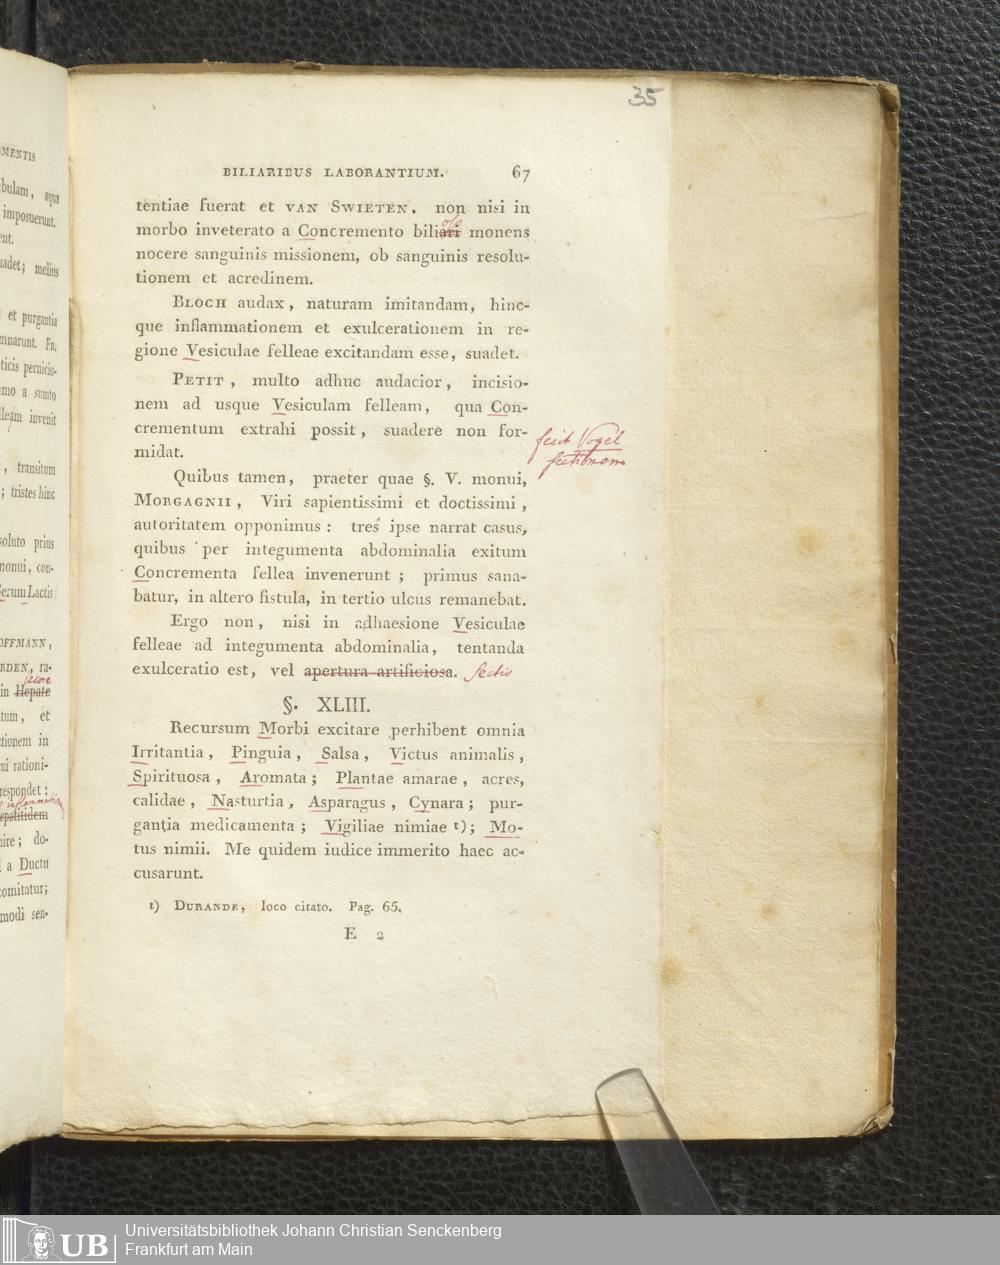 35
BILIARIBUS LABORANTIUM. 67
tentiae fuerat et VAN SWIETEN. non nisi in
morbo inveterato a Concremento biliari monens
oso
nocere sanguinis missionem, ob sanguinis resolu-
tionem et acredinem.
BLOCH audax, naturam imitandam, hinc-
que inflammationem et exulcerationem in re-
gione Vesiculae felleae excitandam esse, suadet.
PETIT, multo adhuc audacior, incisio-
nem ad usque Vesiculam felleam, qua Con-
crementum extrahi possit, suadere non for-
midat.
fecit Vogel
sectionem
Quibus tamen, praeter quae §. V. monui,
MORGAGNII, Viri sapientissimi et doctissimi,
autoritatem opponimus: tres ipse narrat casus,
quibus per integumenta abdominalia exitum
Concrementa fellea invenerunt; primus sana-
batur, in altero fistula, in tertio ulcus remanebat.
Ergo non, nisi in adhaesione Vesiculae
felleae ad integumenta abdominalia, tentanda
exulceratio est, vel apertura artificiosa. Sectio
§. XLIII.
Recursum Morbi excitare perhibent omnia
Irritantia, Pinguia, Salsa, Victus animalis,
Spirituosa, Aromata; Plantae amarae, acres,
calidae, Nasturtia, Asparagus, Cynara; pur-
gantia medicamenta; Vigiliae nimiae t); Mo-
tus nimii. Me quidem iudice immerito haec ac-
cusarunt.
t) DURANDE, loco citato. Pag. 65.
E 2
MENTIS
bulam, aqua
imposuerunt.
ent.
uadet; melius
et purgantia
mnarunt. FR.
ticis pernicio-
imo a sumto
lleam invenit
, transitum
; tristes hinc
soluto prius
monui, con-
Serum Lactis
OFFMANN,
RDEN, ra-
iecore
in Hepate
tum, et
ctionem in
ui rationi-
respondet:
epatitidem
nire; do-
a Ductu
comitatur;
modi sen-
UB
Universitätsbibliothek Johann Christian Senckenberg
Frankfurt am Main